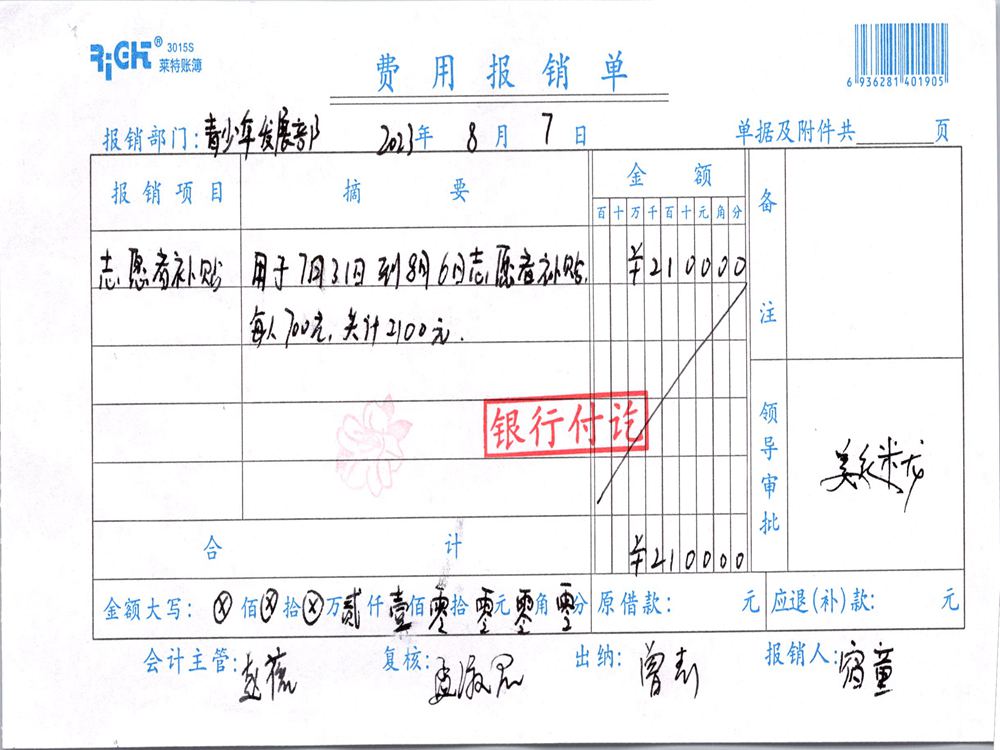 RiGHT® 3015S
莱特账簿
费用报销单
6 936281 401905
报销部门：青少年发展部 2023年 8月 7日 单据及附件共 页
报销项目 摘要 金额 备注
百十万千百十元角分
志愿者补贴 用于7月31日到8月6日志愿者补贴， ¥210000
每人700元，共计2100元．
银行付讫
领导审批
合计 ¥210000
金额大写：ⓧ佰ⓧ拾ⓧ万贰仟壹佰零拾零元零角零分 原借款： 元 应退（补）款： 元
会计主管： 复核： 出纳： 报销人：宿童